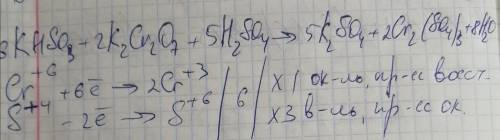 3KHSO3+2K2Cr2O7+5H2SO4→5K2SO4+2Cr2(SO4)3+8H2O
Cr+6 +6ē → 2Cr+3 | 6 | x1 ок-ль, пр-сс восст.
S+4 -2ē → S+6 | x3 в-ль, пр-сс ок.